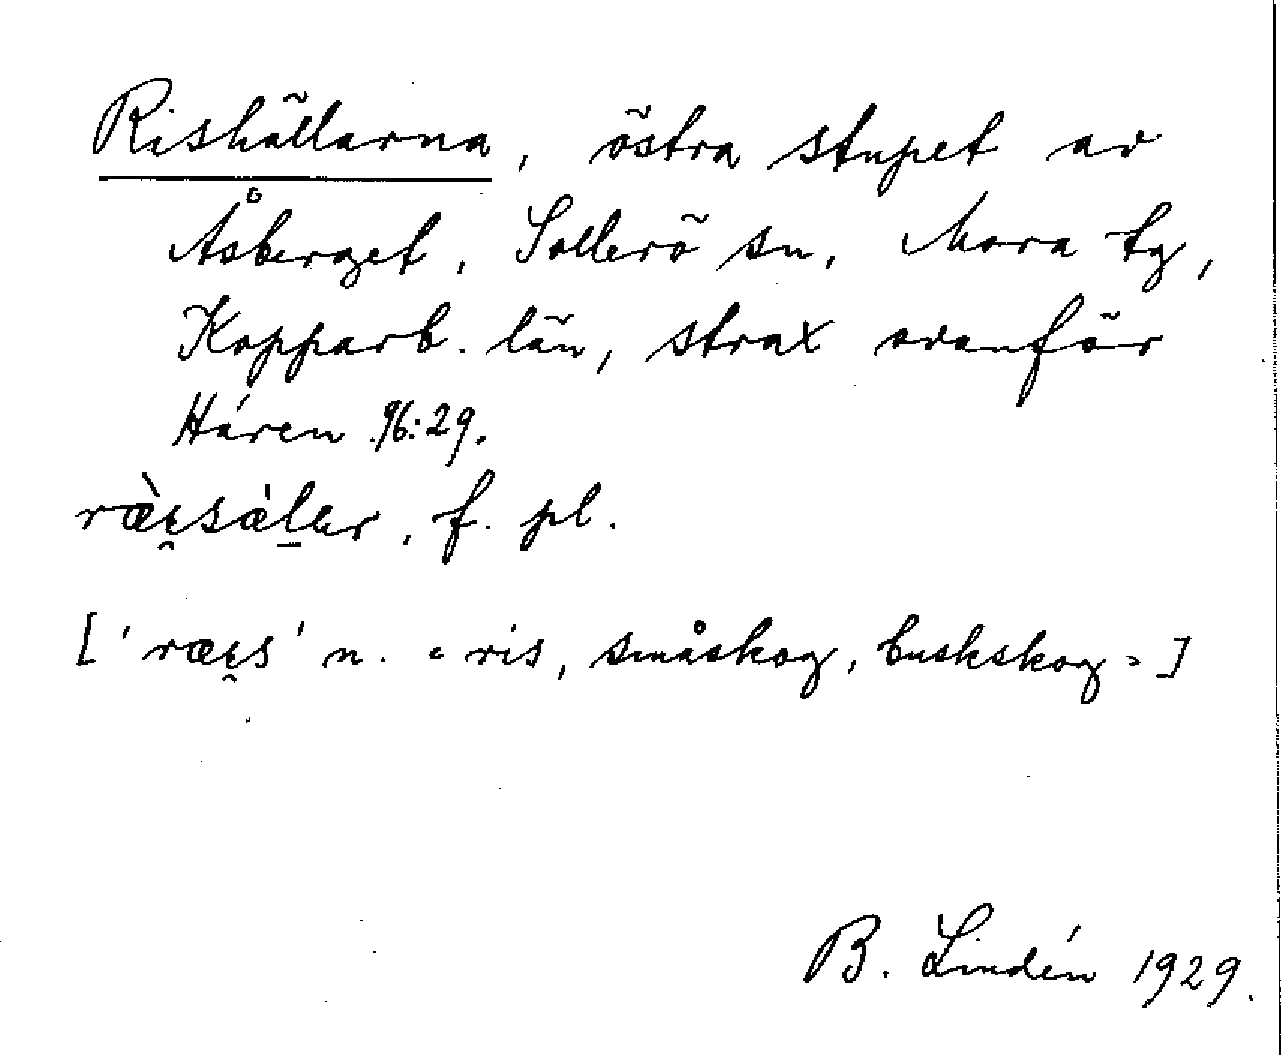 Rishällarna, östra stupet av
Åsberget, Sollerö sn, Mora tg,
Kopparb. län, strax ovanför
Háren 96:29.
ræ̀i̯sæ̀l̠ar, f. pl.
['ræi̯s' n. = ris, småskog, buskskog = ]
B. Lindén 1929.